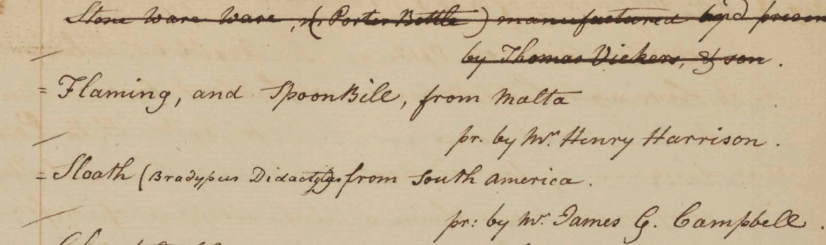 Stone Ware Ware, (Porter Bottle) manufactured
by Thomas Vickers, & son.
= Flaming, and SpoonBill, from Malta
pr. by Mr. Henry Harrison.
= Sloath (Bradypus Didactylus from South America.
pr: by Mr. James G. Campbell.